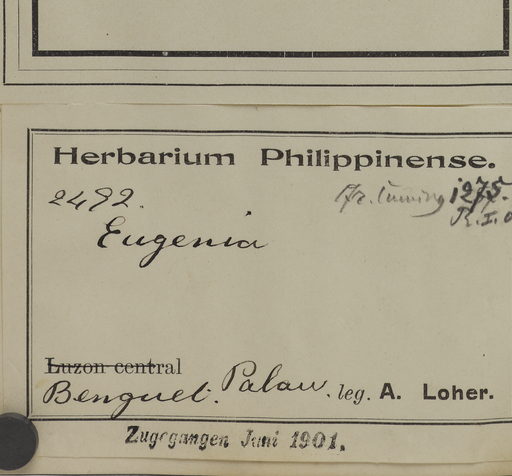 Herbarium Philippinense.
2492. Cuming 1275.
Eugenia
Luzon central
Benguet. Palau. leg. A. Loher.
Zugegangen Juni 1901.